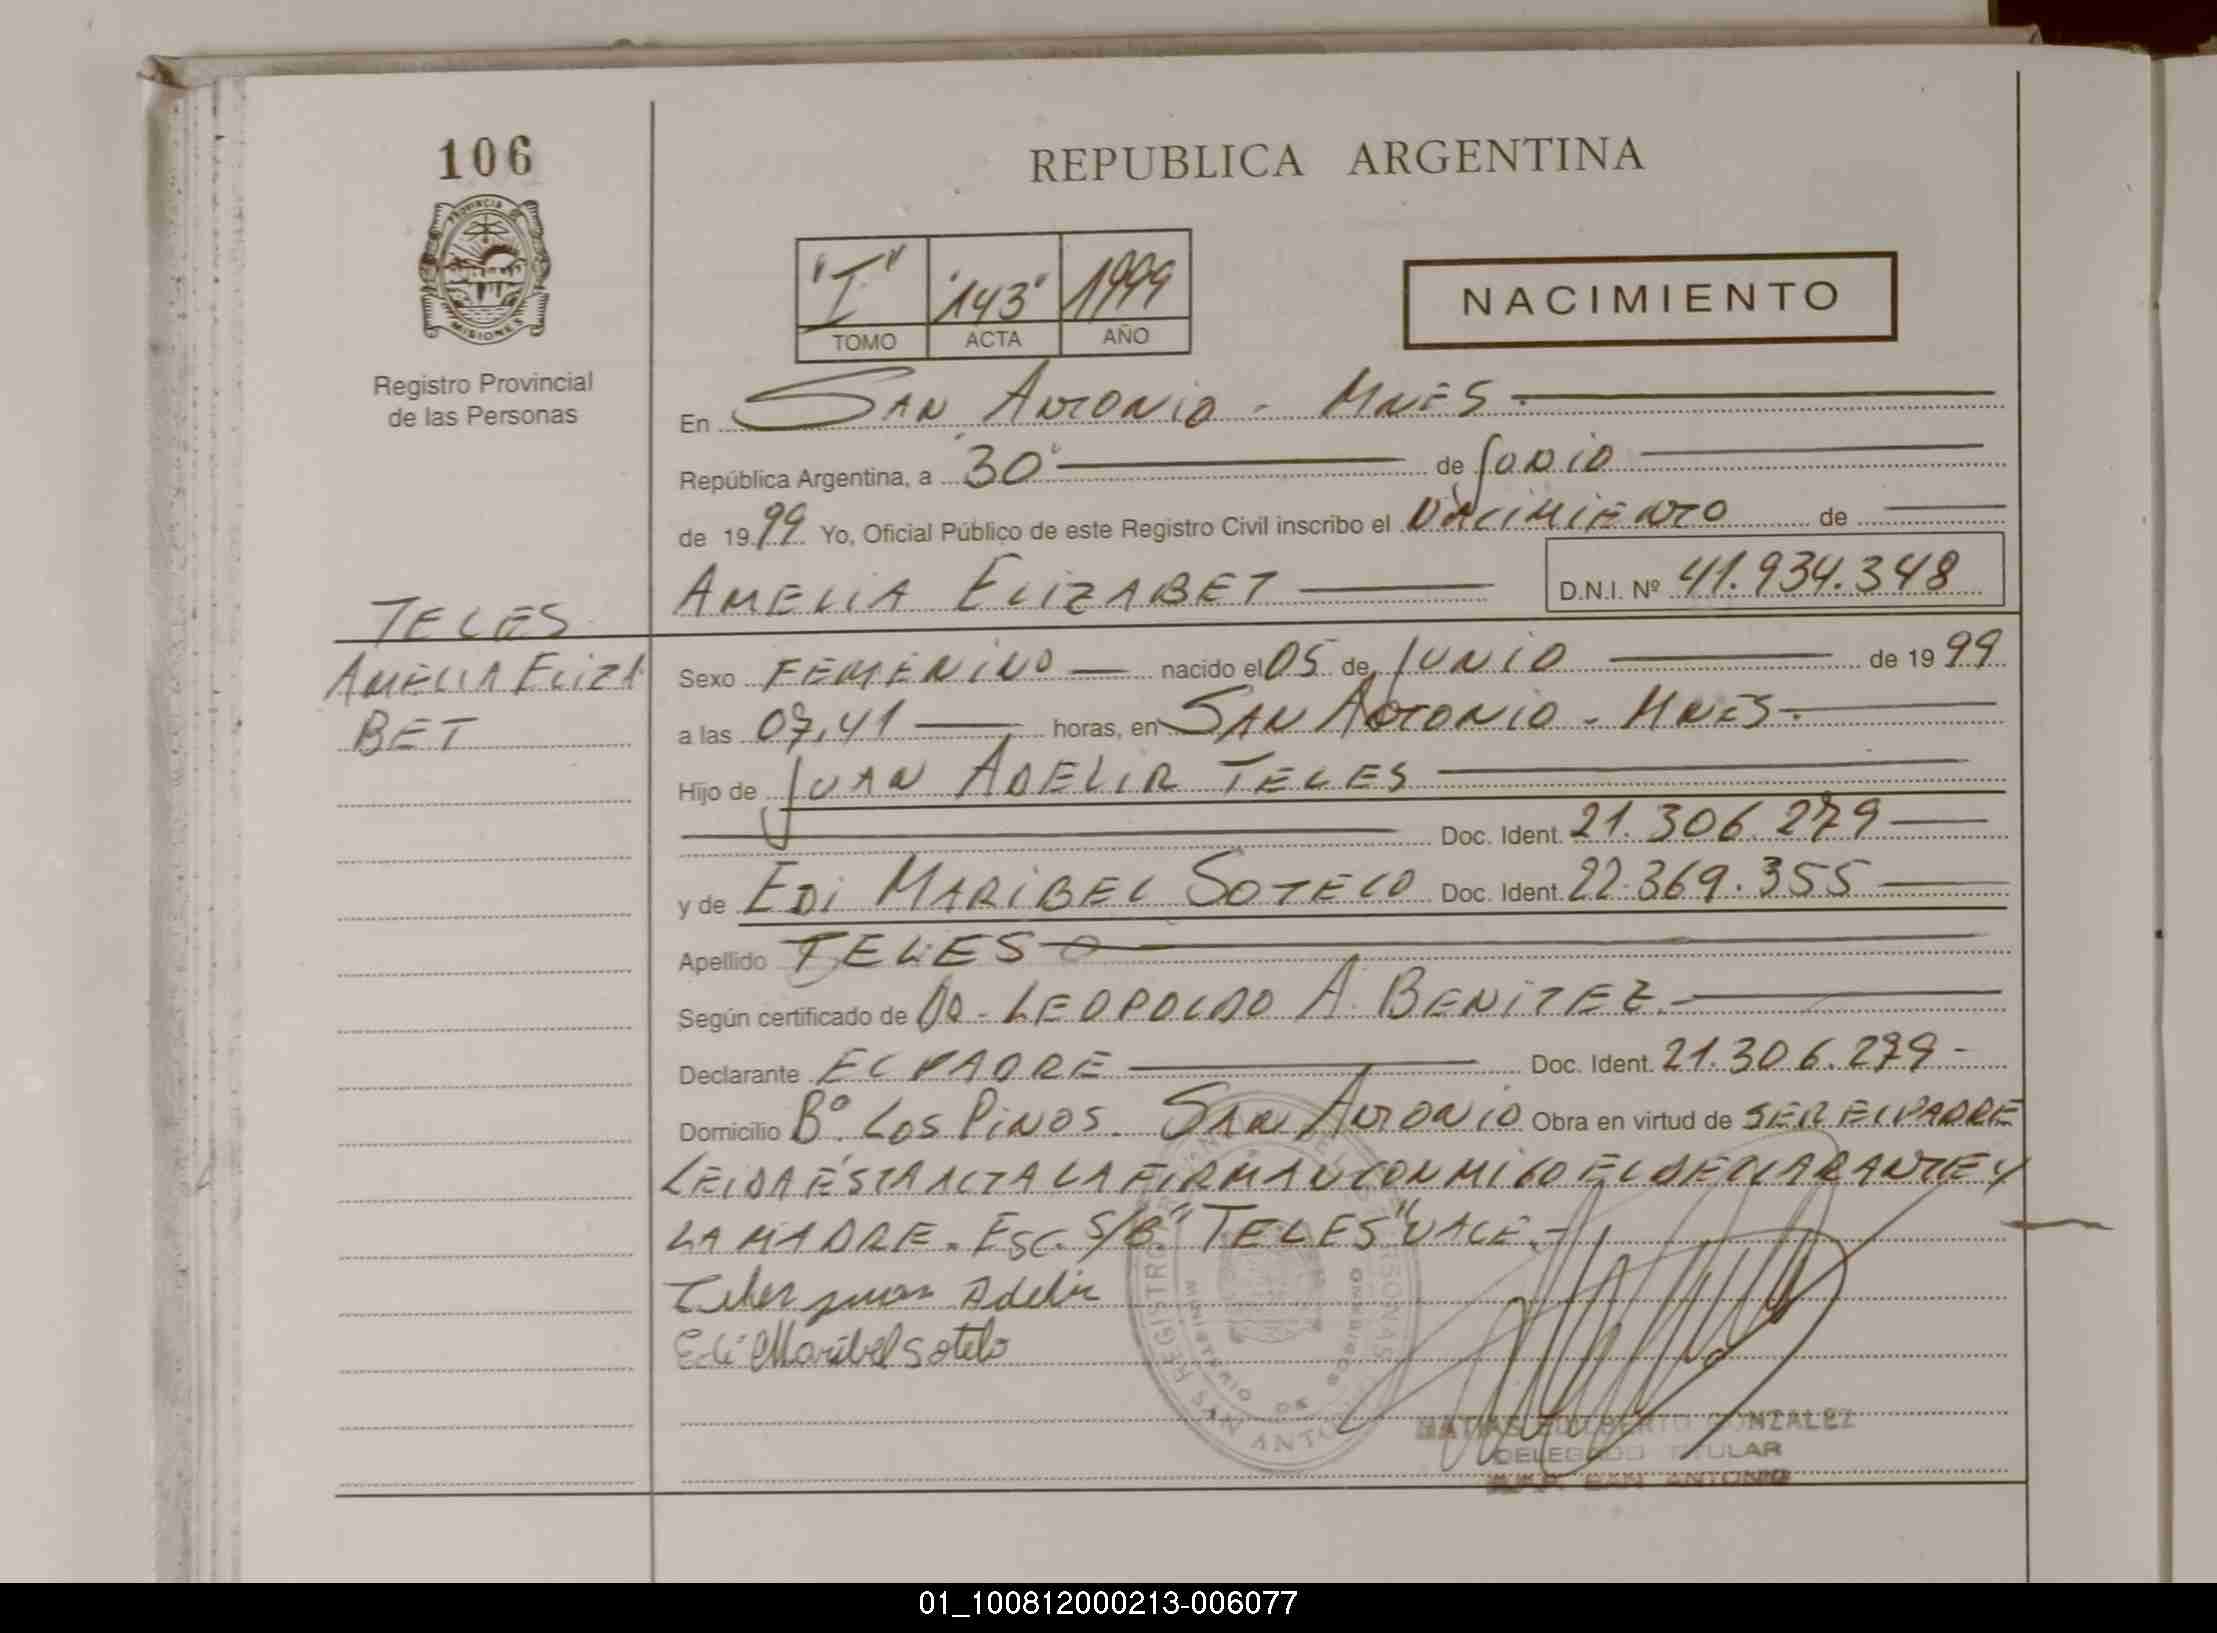 106
REPUBLICA ARGENTINA
PROVINCIA DE
MISIONES
Registro Provincial
de las Personas
"I" "143" 1999
TOMO ACTA AÑO
NACIMIENTO
En SAN ANTONIO - MNES.
República Argentina, a "30" de JUNIO
de 1999 Yo, Oficial Público de este Registro Civil inscribo el NACIMIENTO de
AMELIA ELIZABET D.N.I. Nº 41.934.348
TELES
AMELIA ELIZA
BET
Sexo FEMENINO nacido el 05 de JUNIO de 1999
a las 07,41 horas, en SAN ANTONIO - MNES.
Hijo de JUAN ADELIR TELES
Doc. Ident. 21.306.279
y de EDI MARIBEL SOTELO Doc. Ident. 22.369.355
Apellido TELES
Según certificado de DR - LEOPOLDO A. BENITEZ.
Declarante EL PADRE Doc. Ident. 21.306.279-
Domicilio Bº. LOS PINOS. SAN ANTONIO Obra en virtud de SER EL PADRE
LEIDA ÉSTA ACTA LA FIRMAN CONMIGO EL DECLARANTE Y
LA MADRE. ESC. S/B. "TELES" VALE.-
Teles juan Adelir
Edi Maribel Sotelo
MINISTERIO DE
SAN ANTONIO
GONZALEZ
DELEGADO TITULAR
SAN ANTONIO
01_100812000213-006077